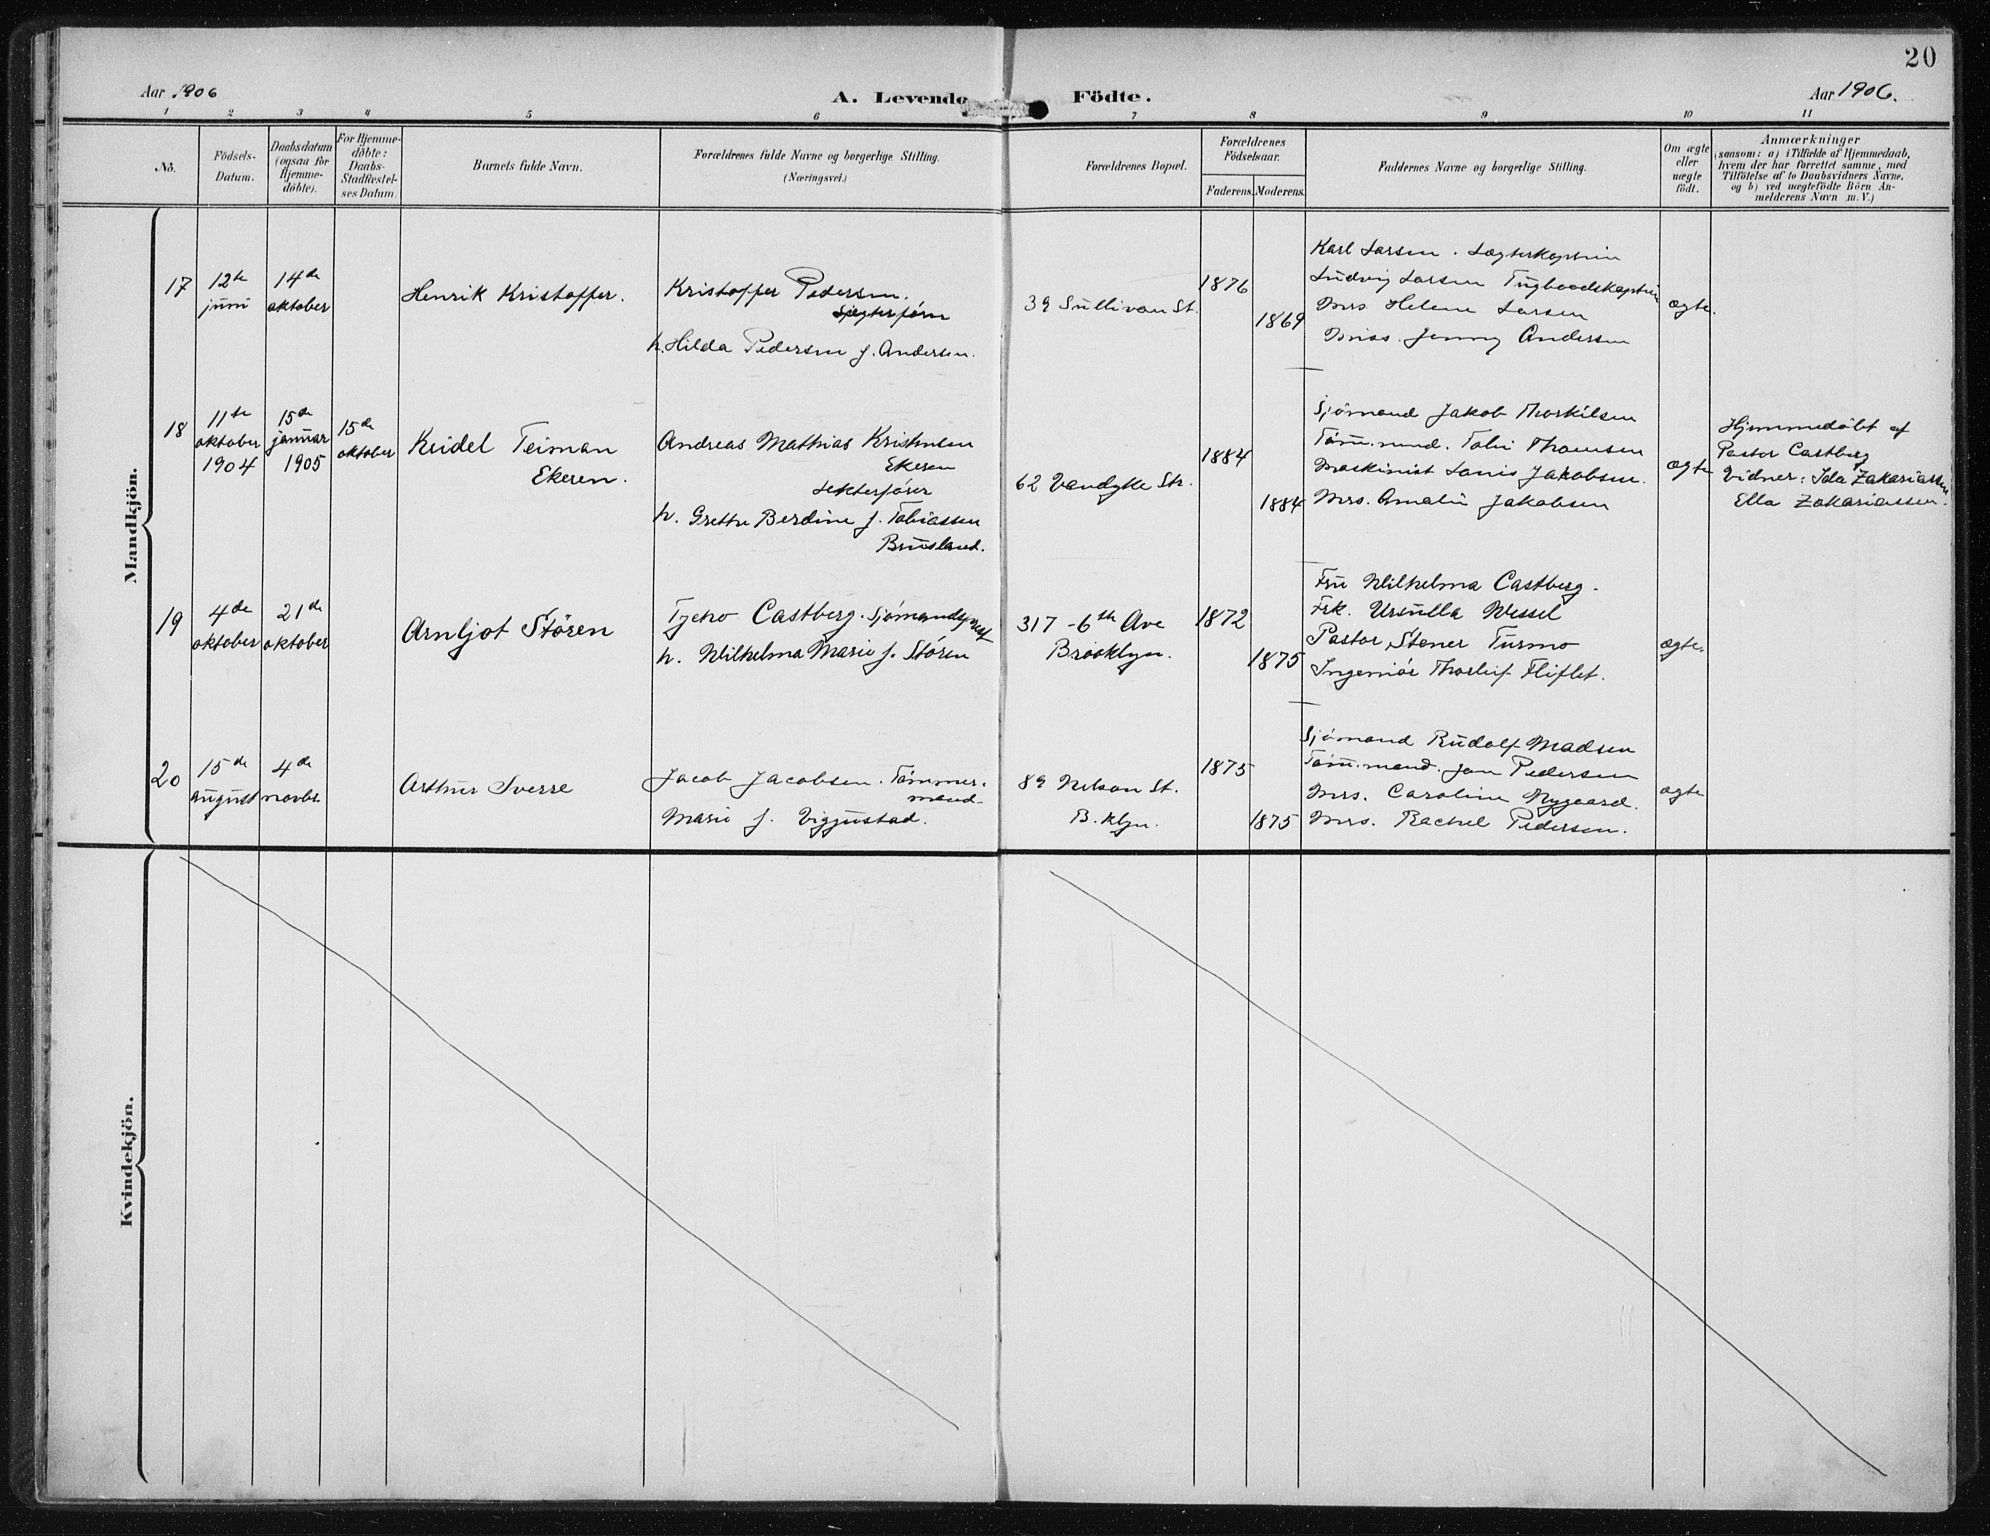 20
Aar 1906
A. Levende Födte.
Aar 1906.
1 2 3 4 5 6 7 8 9 10 11
No.
Födsels-
Datum.
Daabsdatum
(ogsaa for
Hjemme-
döbte).
For Hjemme-
döbte:
Daabs-
Stadfestel-
ses Datum.
Barnets fulde Navn.
Forældrenes fulde Navne og borgerlige Stilling.
(Næringsvei.)
Forældrenes Bopæl.
Forældrenes
Födselsaar.
Faderens. Moderens.
Faddernes Navne og borgerlige Stilling.
Om ægte
eller
uægte
födt.
Anmærkninger
(saasom: a) i Tilfælde af Hjemmedaab,
hvem der har forrettet samme, med
Tilföielse af to Daabsvidners Navne,
og b) ved uægtefödte Börn An-
melderens Navn m. V.)
Mandkjön.
17
12te
juni
14de
oktober
Henrik Kristoffer.
Kristoffer Pedersen.
h. Hilda Pedersen f. Andersen.
39 Sullivan St.
1876
1869
Karl Larsen. Lægterkaptein
Ludvig Larsen Tugboadskaptein
Mrs Helene Larsen
Miss. Jenny Andersen
ægte.
18
11te
oktober
1904
15de
januar
1905
15de
oktober
Keidel Teiman
Ekeren.
Andreas Mathias Kristensen
Ekeren
Lekterfører
h. Grethe Berdine f. Tobiassen
Brusland.
62 Vandyke Str.
1884
1884
Sjömand Jakob Thorkilsen
Tömmand. Tobi Thomsen
Maskinist Louis Jakobsen.
Mrs. Amalie Jakobsen
ægte
Hjemmedöbt af
Pastor Castberg
Vidner: Ida Zakariassen
Ella Zakariassen.
19
4de
oktober
21de
oktober
Arnljot Stören
Tycho Castberg. Sjömandsprest
h. Wilhelma Marie f. Stören
317 - 6th Ave
Brooklyn.
1872
1875
Fru Wilhelma Castberg.
Frk. Ursulla Wessel
Pastor Stener Turmo
Ingeniör Thorleif Fliflet.
ægte.
20
15de
august
4de
novbr.
Arthur Sverre
Jacob Jacobsen. Tömmer-
mand.
Marie f. Viggustad.
89 Nelson St.
B.klyn.
1875
1875
Sjömand Rudolf Madsen
Tömmand. Jon Pedersen
Mrs. Caroline Nygaard.
Mrs. Rachel Pedersen.
ægte
Kvindekjön.